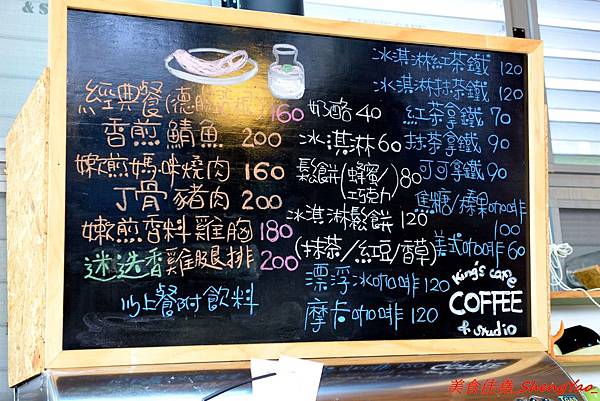 經典餐(德 160
香煎鯖魚 200
嫩煎媽咪燒肉 160
丁骨豬肉 200
嫩煎香料雞胸 180
迷迭香雞腿排 200
以上餐附飲料
奶酪 40
冰淇淋 60
鬆餅(蜂蜜/巧克力) 80
冰淇淋鬆餅 120
(抹茶/紅豆/香草)
漂浮冰咖啡 120
摩卡咖啡 120
冰淇淋紅茶鐵 120
冰淇淋抹茶鐵 120
紅茶拿鐵 70
抹茶拿鐵 90
可可拿鐵 90
焦糖/榛果咖啡 100
美式咖啡 60
King's cafe
COFFEE
& studio
美食佳魚 ShengYao_